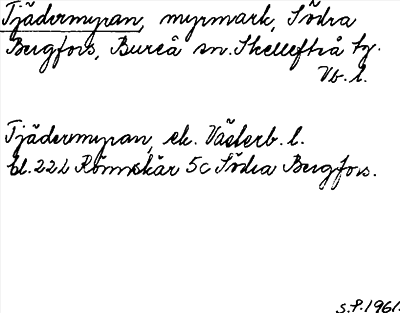 Tjädermyran, myrmark, Södra
Bergfors, Bureå sn. Skellefteå tg.
Vb. l.
Tjädermyran, ek. Västerb. l.
bl. 22L Rönnskär 5c Södra Bergfors.
S.P. 1961.